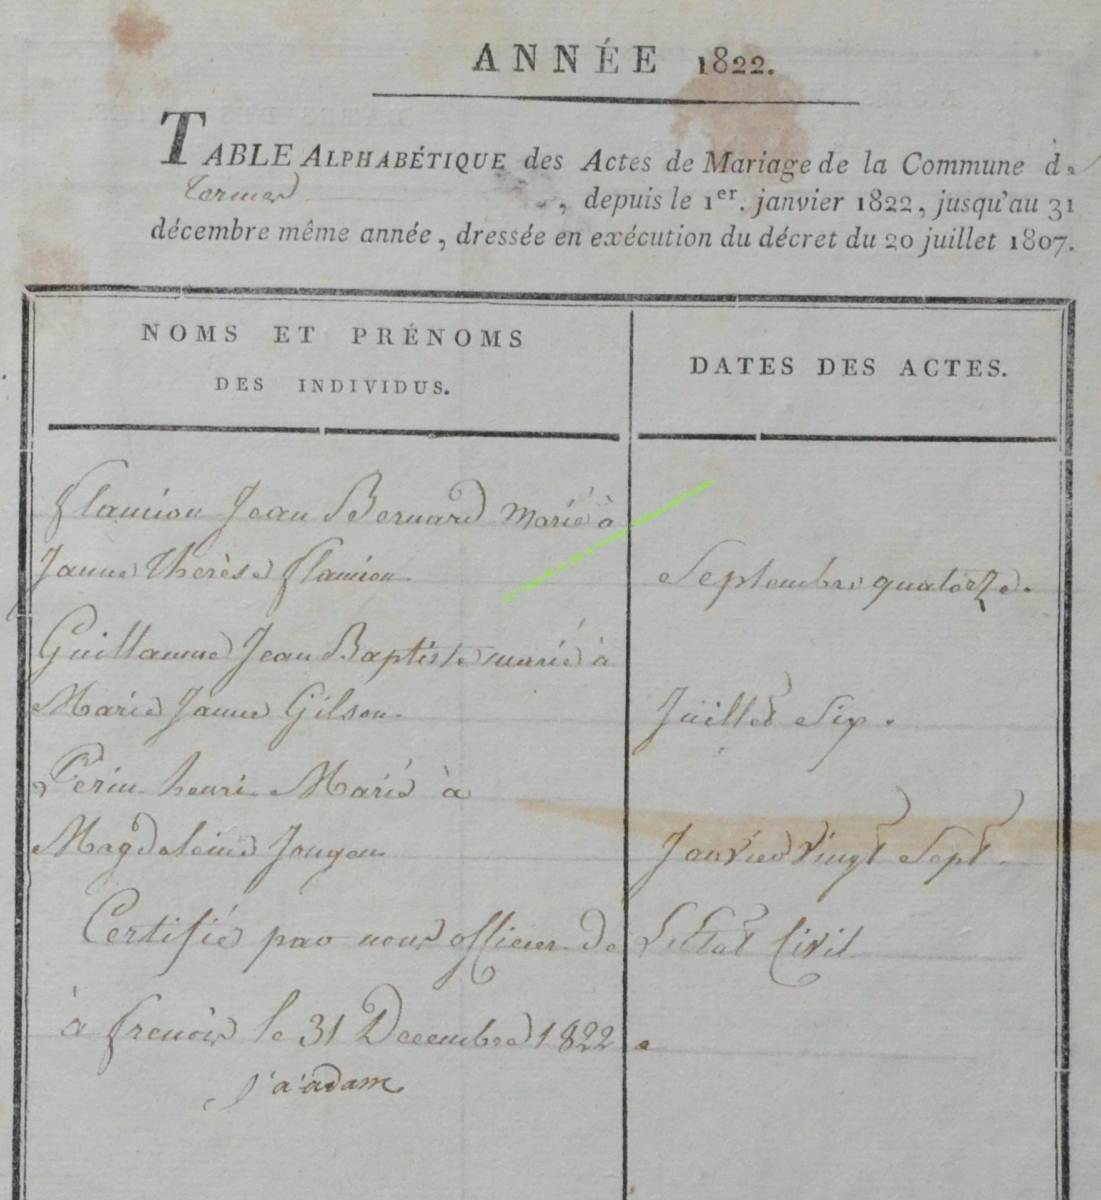 ANNÉE 1822.
TABLE ALPHABÉTIQUE des Actes de Mariage de la Commune d
, depuis le 1er. janvier 1822, jusqu'au 31
décembre même année, dressée en exécution du décret du 20 juillet 1807.
NOMS ET PRÉNOMS
DES INDIVIDUS.
DATES DES ACTES.
flamion Jean Bernard marié à
Janne thérèse flamion
Septembre quatorze.
Guillaume Jean Baptiste marié à
Marie Janne Gilson
Juillet Six.
Perin henri Marié à
Magdeleine
Janvier vingt Sept.
Certifié par nous officier de L'Etat Civil
à frenois le 31 Decembre 1822.
j a adam